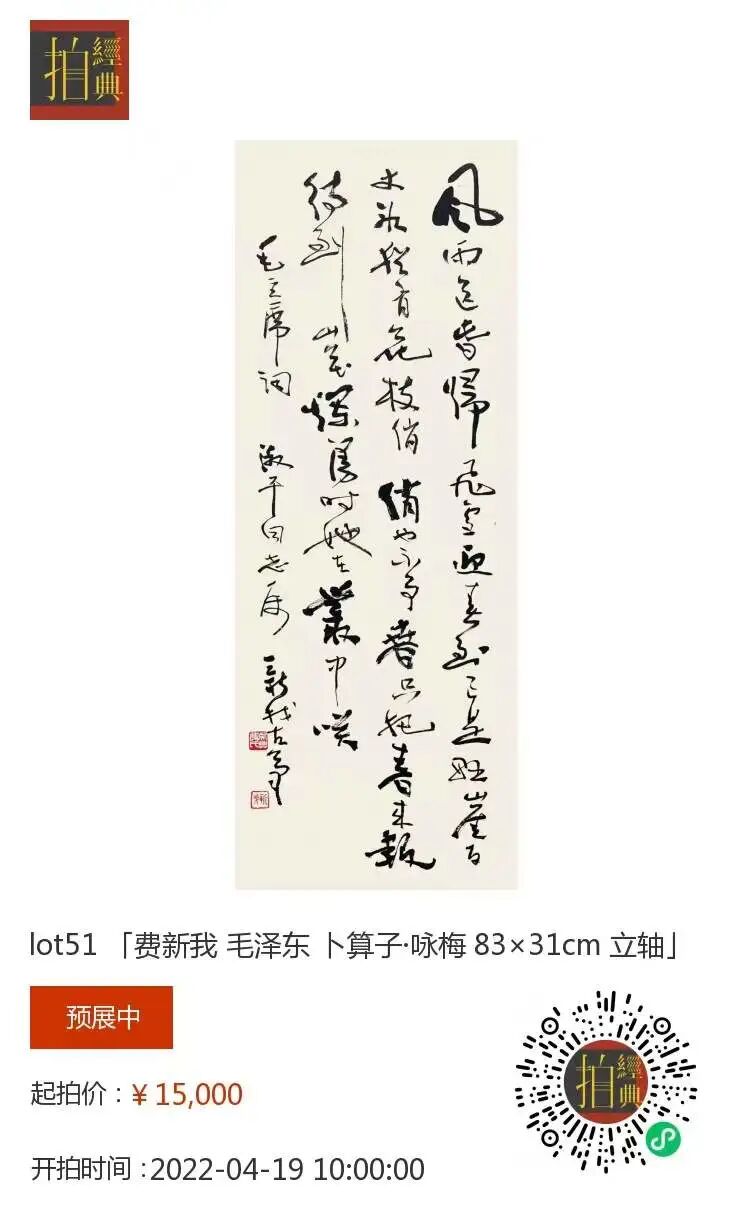 拍 經典
风雨送春歸飛雪迎春到已是悬崖百
丈冰猶有花枝俏俏也不争春只把春来報
待到山花爛漫时她在叢中咲
毛主席词 平同志属 新我左筆
lot51 「费新我 毛泽东 卜算子·咏梅 83×31cm 立轴」
预展中
起拍价：¥ 15,000
开拍时间：2022-04-19 10:00:00
拍 經典